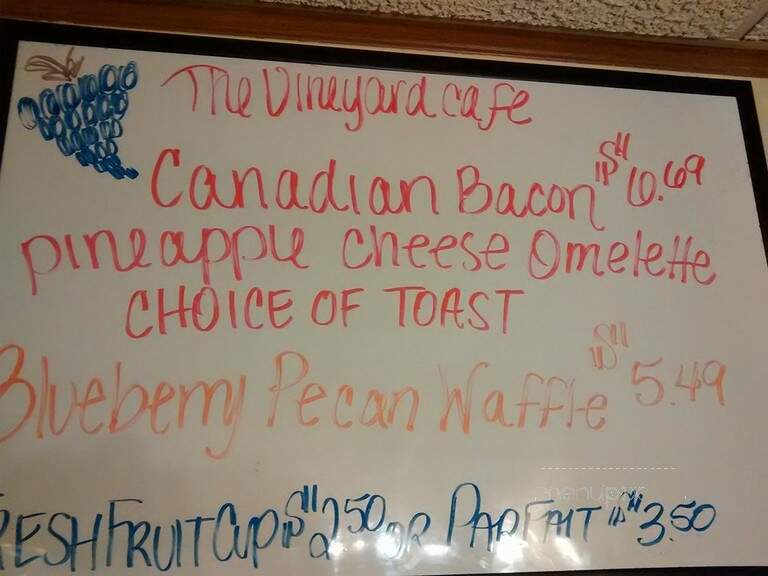 The Vineyard cafe
Canadian Bacon $6.69
pineapple cheese Omelette
CHOICE OF TOAST
Blueberry Pecan Waffle $5.49
RESH FRUIT CUP $2.50 OR PARFAIT $3.50
menupix